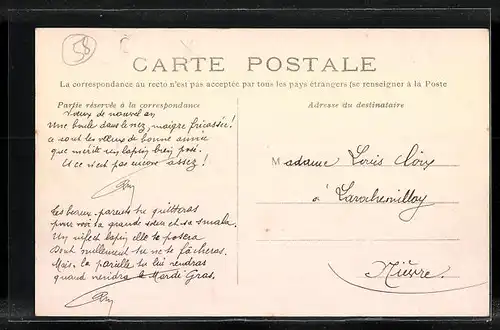 58
CARTE POSTALE
La correspondance au recto n'est pas acceptée par tous les pays étrangers (se renseigner à la Poste
Partie réservée à la correspondance
Adresse du destinataire
Vœux de nouvel an
Une boule dans le nez, maigre fricassée!
Ce sont les vœux de bonne année
que mérite un lapin bien posé.
Et ce n'est pas encore assez!
Tes beaux-parents tu quitteras
pour voir ta grande sœur et sa smala.
Un infect lapin elle te posera
dont nullement tu ne te fâcheras.
Mais, la pareille tu lui rendras
quand viendra le Mardi-Gras.
Madame Louis
à Larochemillay
Nièvre.